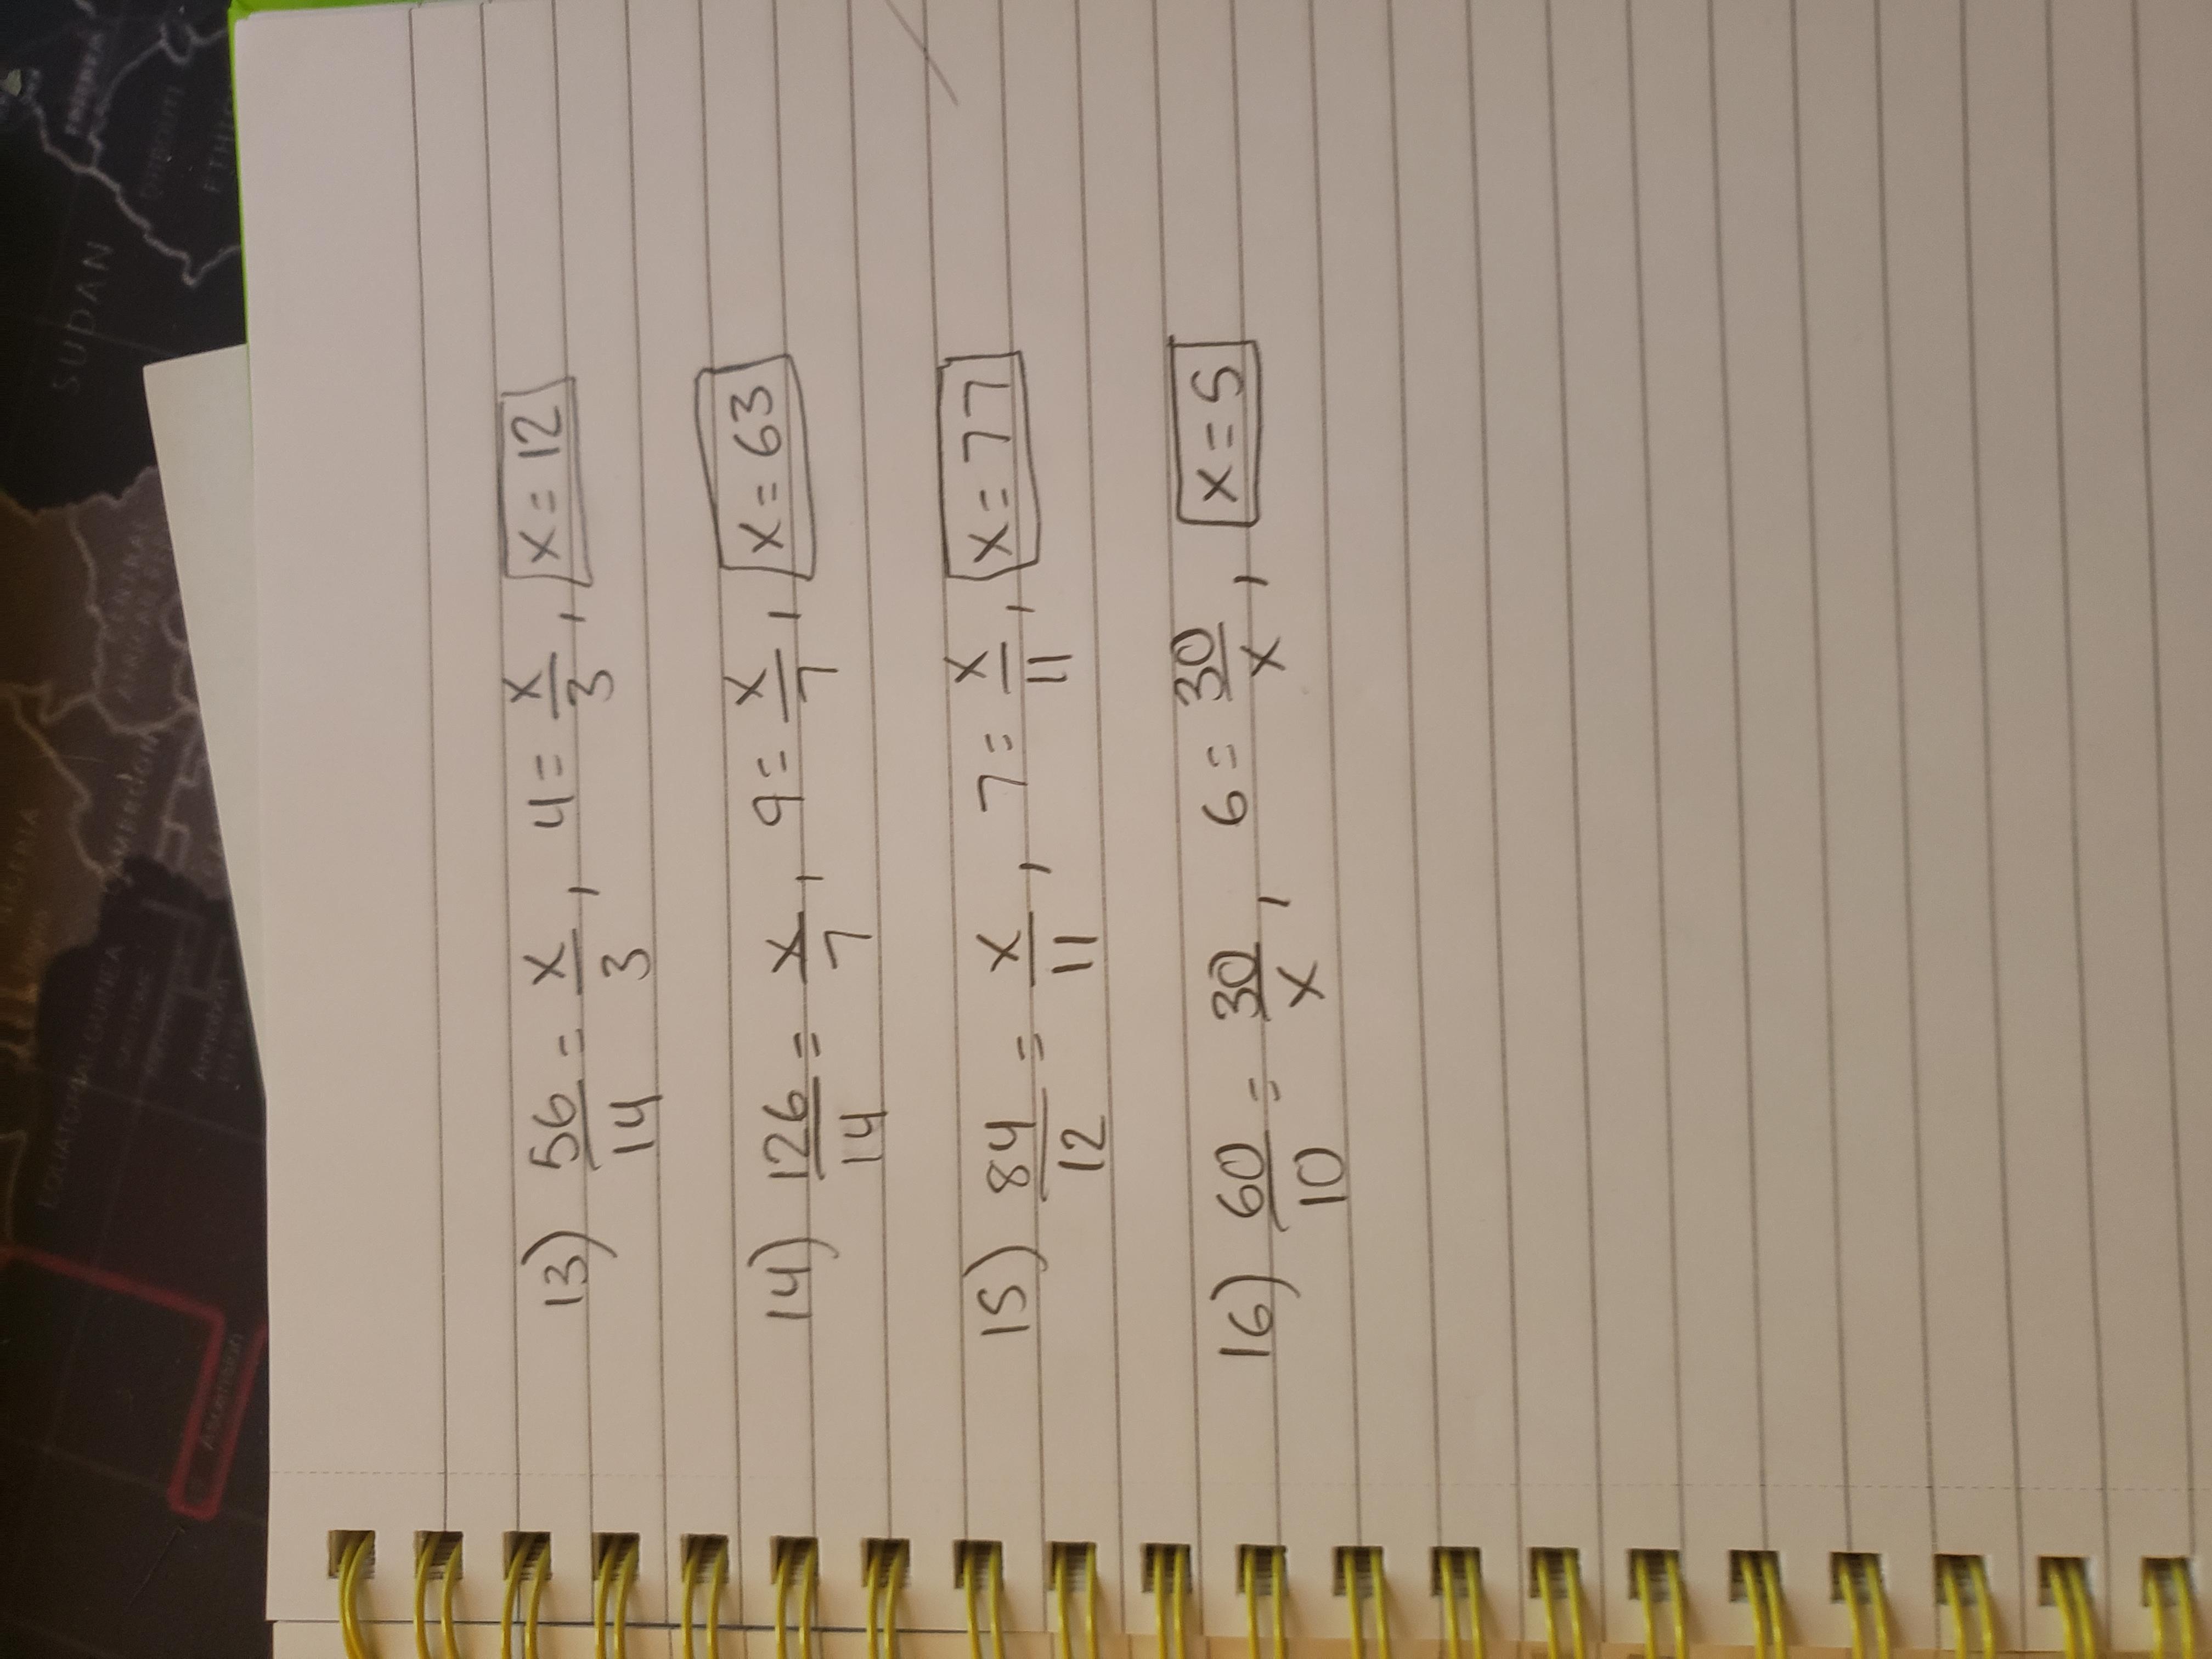 13) 56/14 = x/3 , 4 = x/3 , x = 12
14) 126/14 = x/7 , 9 = x/7 , x = 63
15) 84/12 = x/11 , 7 = x/11 , x = 77
16) 60/10 = 30/x , 6 = 30/x , x = 5
SUDAN
EQUATORIAL GUINEA
CAMEROON
Annobón
Ascension